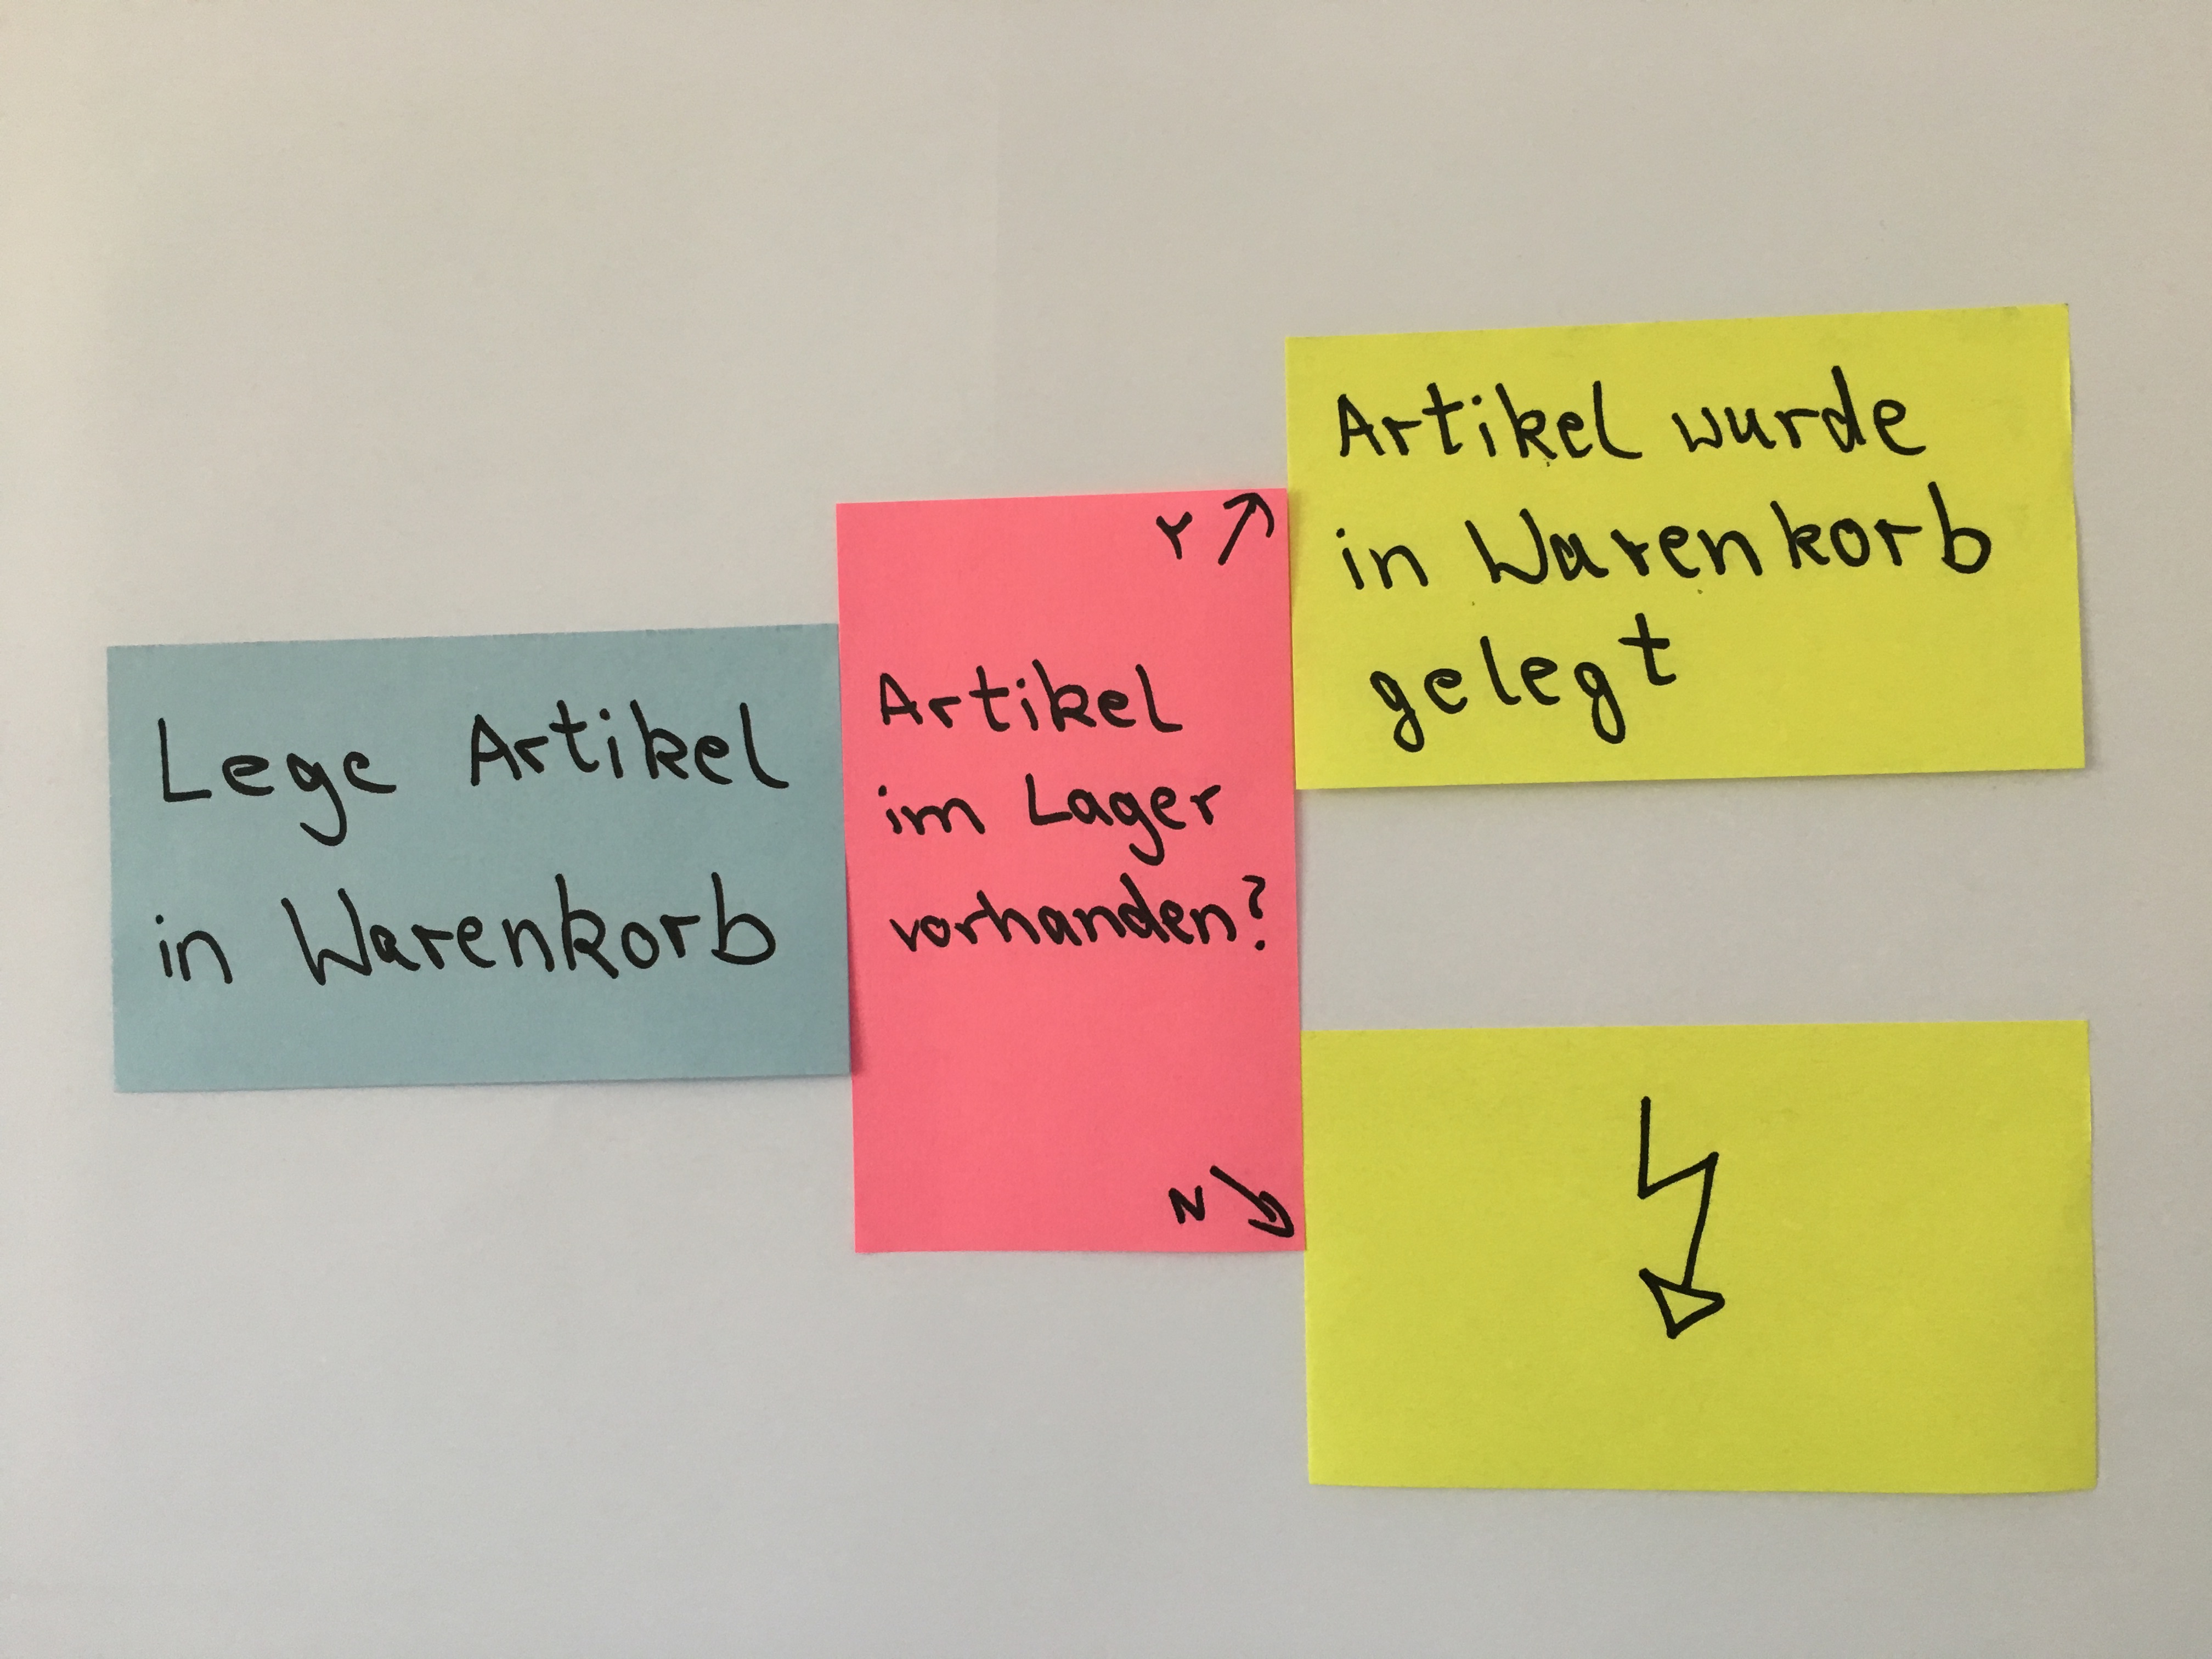 Lege Artikel
in Warenkorb
Y
Artikel
im Lager
vorhanden?
N
Artikel wurde
in Warenkorb
gelegt